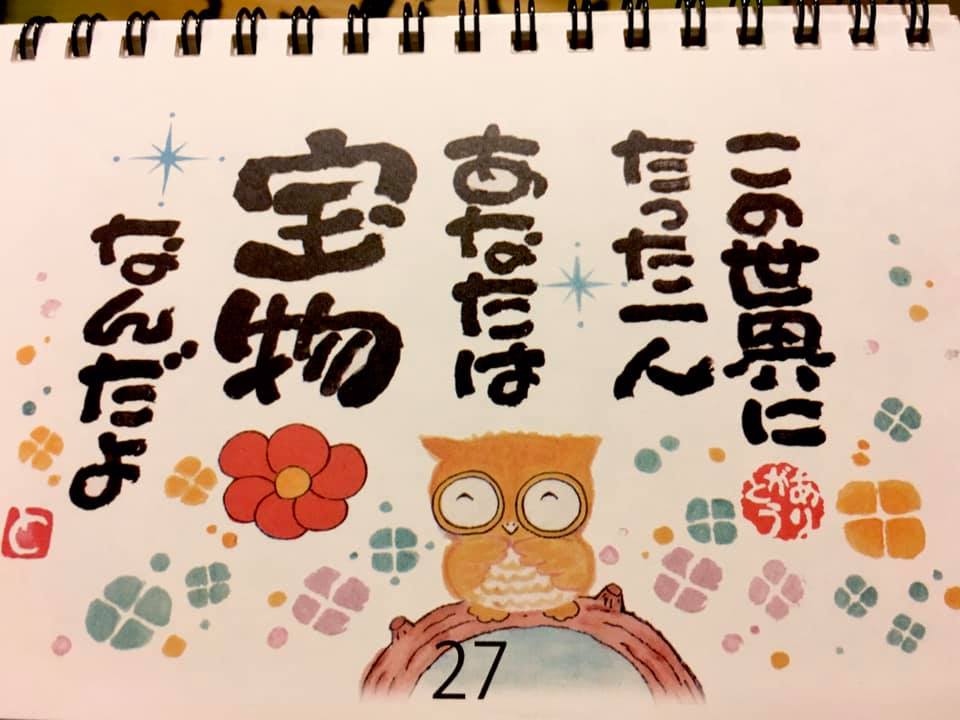 この世界に
たった一人
あなたは
宝物
なんだよ
ありがとう
27